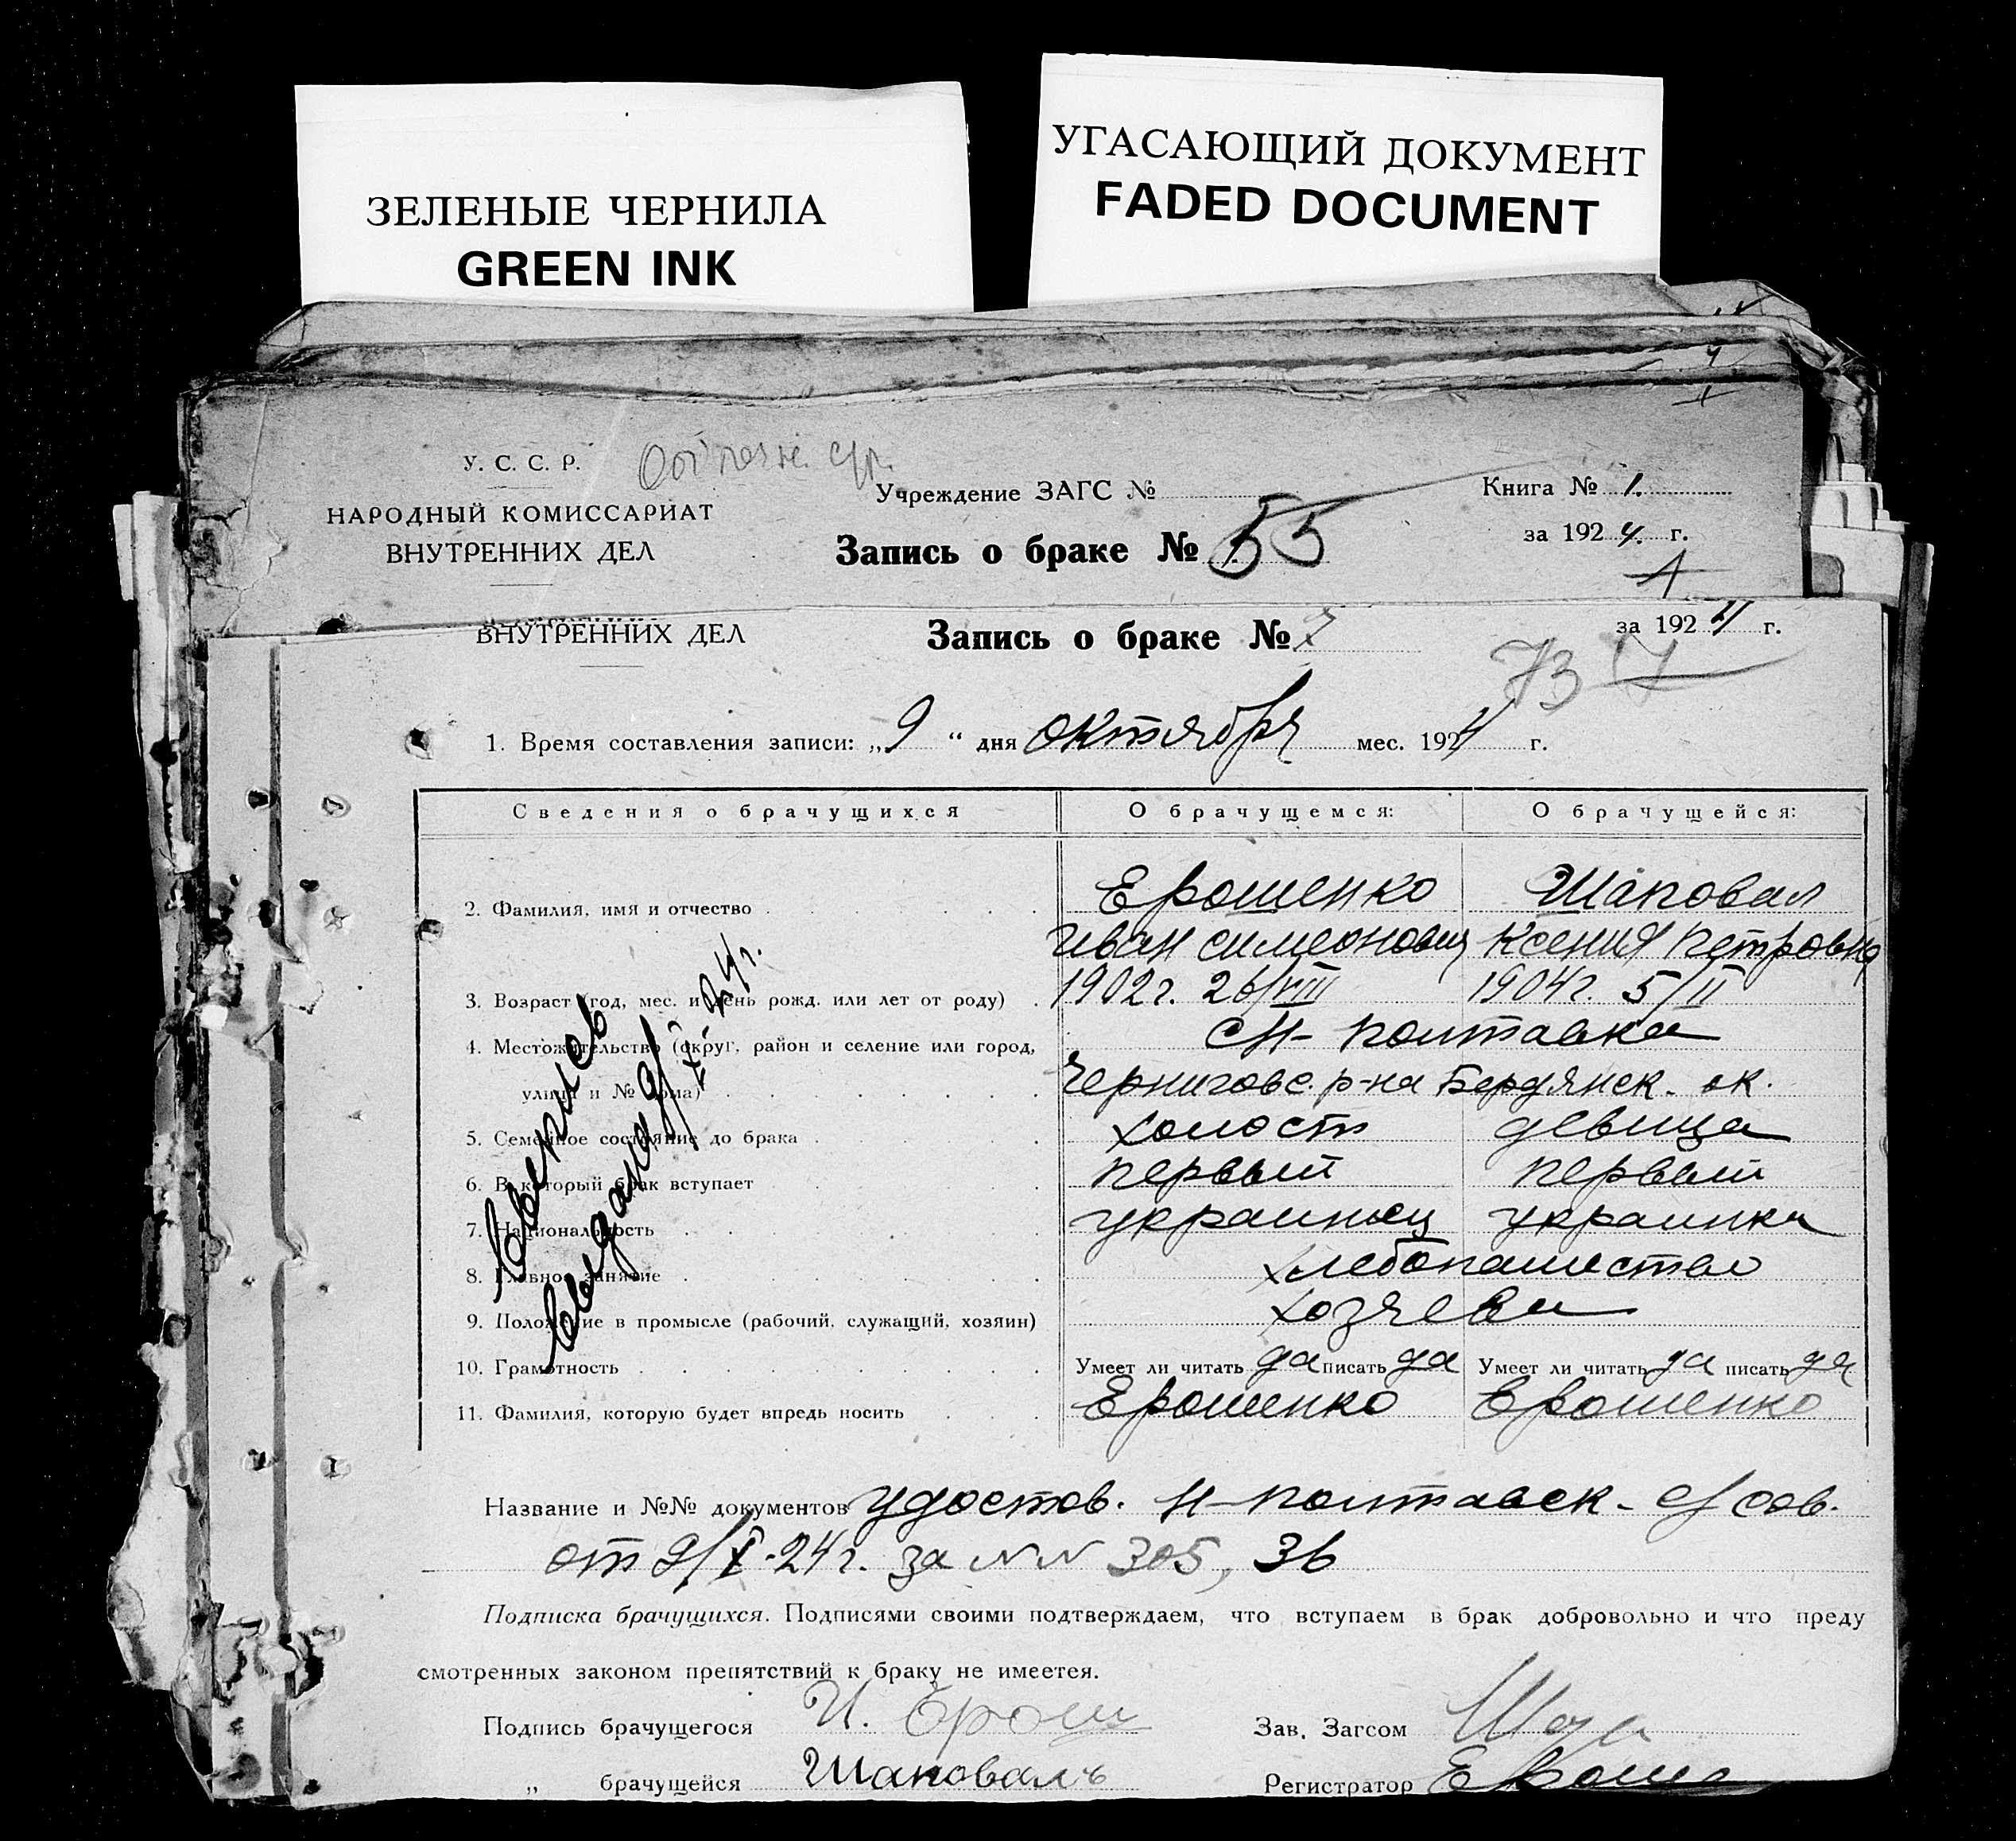 ЗЕЛЕНЫЕ ЧЕРНИЛА
GREEN INK
УГАСАЮЩИЙ ДОКУМЕНТ
FADED DOCUMENT
У. С. С. Р.
НАРОДНЫЙ КОМИССАРИАТ
ВНУТРЕННИХ ДЕЛ
Учреждение ЗАГС №
Запись о браке № 55
Книга № 1.
за 1924. г.
ВНУТРЕННИХ ДЕЛ
Запись о браке № 7
за 1924 г.
73
1. Время составления записи: „9“ дня октября мес. 1924 г.
Сведения о брачущихся О брачущемся: О брачущейся:
2. Фамилия, имя и отчество Ерошенко Шаповал
Иван Симеонович Ксения Петровна
3. Возраст (год, мес. и день рожд. или лет от роду) 1902 г. 26/VIII 1904 г. 5/II
4. Местожительство (округ, район и селение или город, сН-Полтавка
улица и № дома) Черниговс. р-на Бердянск. ок.
5. Семейное состояние до брака холост девица
6. В который брак вступает первый первый
7. Национальность украинец украинка
8. Главное занятие хлебопашество
9. Положение в промысле (рабочий, служащий, хозяин) хозяева
10. Грамотность Умеет ли читать да писать да Умеет ли читать да писать да
11. Фамилия, которую будет впредь носить Ерошенко Ерошенко
выдана 9/X 24 г.
Название и №№ документов удостов. Н-Полтавск- с/сов.
от 9/X-24 г. за NN 305, 36
Подписка брачущихся. Подписями своими подтверждаем, что вступаем в брак добровольно и что преду
смотренных законом препятствий к браку не имеется.
Подпись брачущегося И. Ерош Зав. Загсом
„ брачущейся Шаповалъ Регистратор